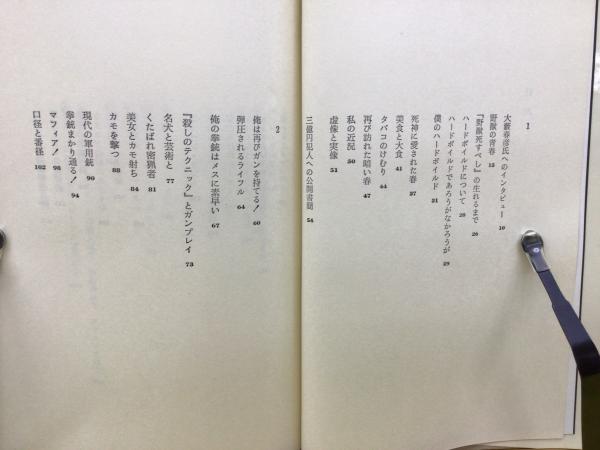 1
大藪春彦氏へのインタビュー 10
野獣の青春 15
『野獣死すべし』の生れるまで 26
ハードボイルドについて 28
ハードボイルドであろうがなかろうが 29
僕のハードボイルド 31
死神に愛された春 37
美食と大食 41
タバコのけむり 44
再び訪れた暗い春 47
私の近況 50
虚像と実像 51
三億円犯人への公開書簡 54
2
俺は再びガンを持てる! 60
弾圧されるライフル 64
俺の拳銃はメスに素早い 67
『殺しのテクニック』とガンプレイ 73
名犬と芸術と 77
くたばれ密猟者 81
美女とカモ射ち 84
カモを撃つ 88
現代の軍用銃 90
拳銃まかり通る! 94
マフィア! 98
口径と番径 102